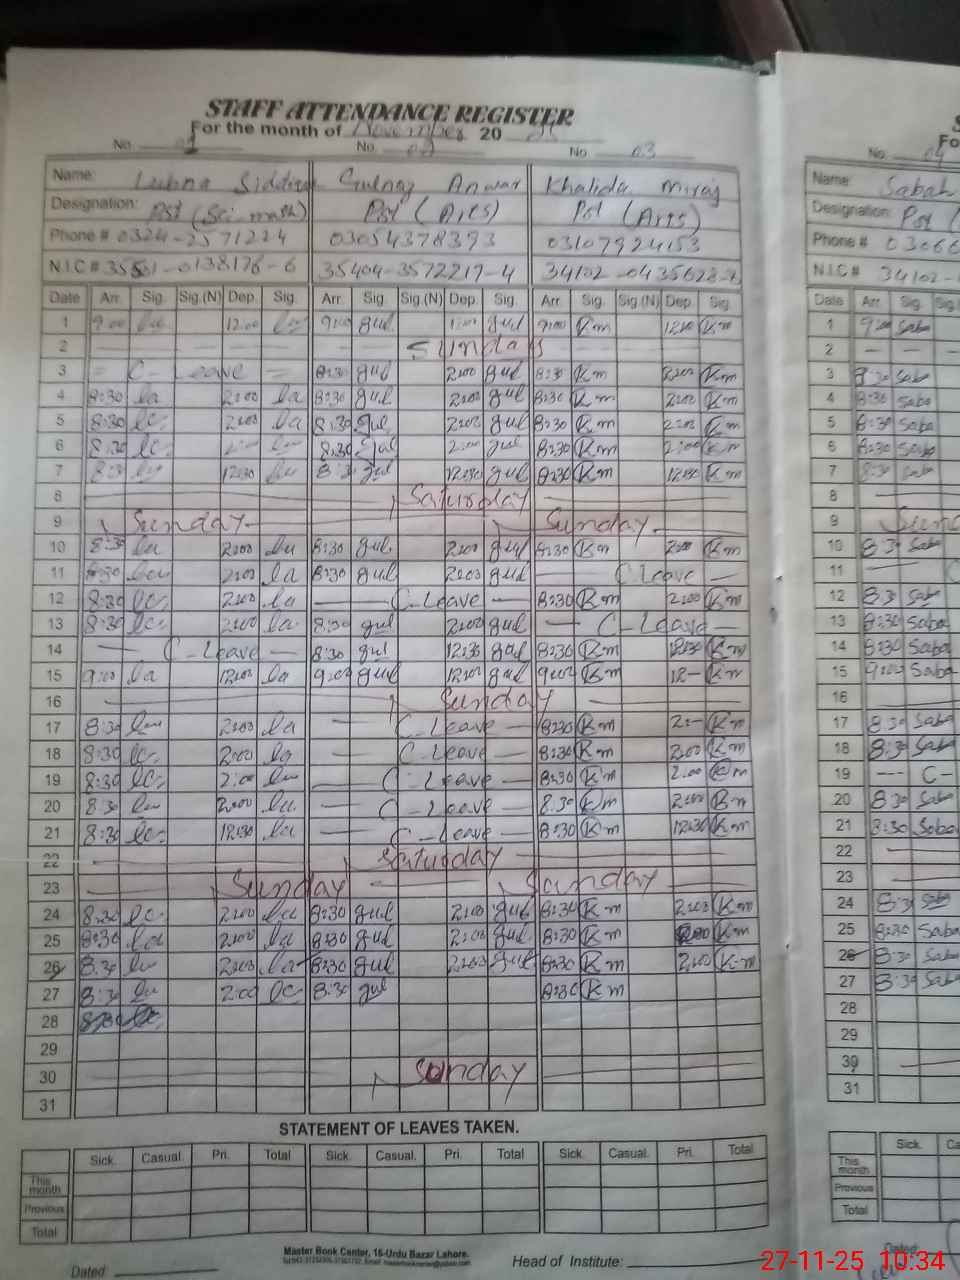 STAFF ATTENDANCE REGISTER
For the month of November 20 25
No. 01 No. 02 No. 03 No. 04
Name: Lubna Siddiqa Gulnaz Anwar Khalida Miraj Name: Sabah
Designation: Pst (Sci math) Pst (Arts) Pst (Arts) Designation: Pst (
Phone # 0324-2571224 03054378393 03107924153 Phone # 03066
N.I.C # 0138176-6 35404-3572217-4 34102 N.I.C # 34102-
Date Arr. Sig. Sig.(N) Dep. Sig. Arr. Sig. Sig.(N) Dep. Sig. Arr. Sig. Sig.(N) Dep. Sig. Date Arr. Sig. Sig
1 9:00 12:00 9:00 gul gul 9:00 Km 12:00 Km 1 9:00 Saba
2 Sunday 2
3 C-Leave 8:30 gul 2:00 gul 8:30 Km 2:00 Km 3 8:30 Saba
4 8:30 la 2:00 la 8:30 gul 2:00 gul 8:30 Km 2:00 Km 4 8:30 Saba
5 8:30 2:00 la 8:30 gul 2:00 gul 8:30 Km 2:00 Km 5 8:30 Saba
6 8:30 2:00 8:30 gul 2:00 gul 8:30 Km 2:00 Km 6 8:30 Saba
7 8:30 12:30 8:30 gul 12:30 gul 8:30 Km 12:30 Km 7 8:30 Saba
8 Saturday 8
9 Sunday Sunday 9 Sund
10 8:30 2:00 8:30 gul 2:00 gul 8:30 Km 2:00 Km 10 8:30 Saba
11 8:30 2:00 la 8:30 gul 2:00 gul C-Leave 11
12 8:30 2:00 la C-Leave 8:30 Km 2:00 Km 12 8:30 Saba
13 8:30 2:00 la 8:30 gul 2:00 gul C-Leave 13 8:30 Saba
14 C-Leave 8:30 gul 12:30 gul 8:30 Km 12:30 Km 14 8:30 Saba
15 9:00 la 12:00 la 9:00 gul 12:00 gul 9:00 Km 12- Km 15 9:00 Saba
16 Sunday 16
17 8:30 2:00 la C-Leave 8:30 Km 2:- Km 17 8:30 Saba
18 8:30 2:00 la C-Leave 8:30 Km 2:00 Km 18 8:30 Saba
19 8:30 2:00 C-Leave 8:30 Km 2:00 Km 19 C-
20 8:30 2:00 C-Leave 8:30 Km 2:00 Km 20 8:30 Saba
21 8:30 12:30 la C-Leave 8:30 Km 12:30 Km 21 8:30 Saba
22 Saturday 22
23 Sunday Sunday 23
24 8:30 2:00 la 8:30 gul 2:00 gul 8:30 Km 2:00 Km 24 8:30 Saba
25 8:30 la 2:00 la 8:30 gul 2:00 gul 8:30 Km 2:00 Km 25 8:30 Saba
26 8:30 2:00 la 8:30 gul 2:00 gul 8:30 Km 2:00 Km 26 8:30 Saba
27 8:30 2:00 8:30 gul 8:30 Km 27 8:30 Saba
28 8:30 28
29 29
30 Sunday 30
31 31
STATEMENT OF LEAVES TAKEN.
Sick. Casual. Pri. Total Sick. Casual. Pri. Total Sick. Casual. Pri. Total Sick. Ca
This month This month
Previous Previous
Total Total
Master Book Center, 16-Urdu Bazar Lahore.
Dated: Head of Institute: Dated:
27-11-25 10:34